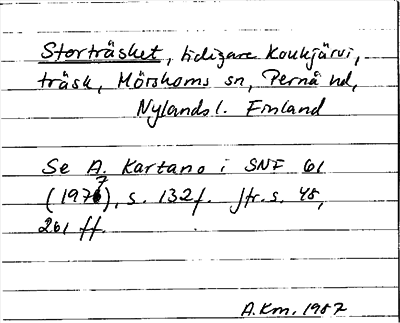 Storträsket, tidigare Koukjärvi,
träsk, Mörskoms sn, Pernå hd,
Nylands l. Finland
Se A. Kartano i SNF 61
(1977), s. 132f. Jfr. s. 48,
261 ff.
A.Km. 1987